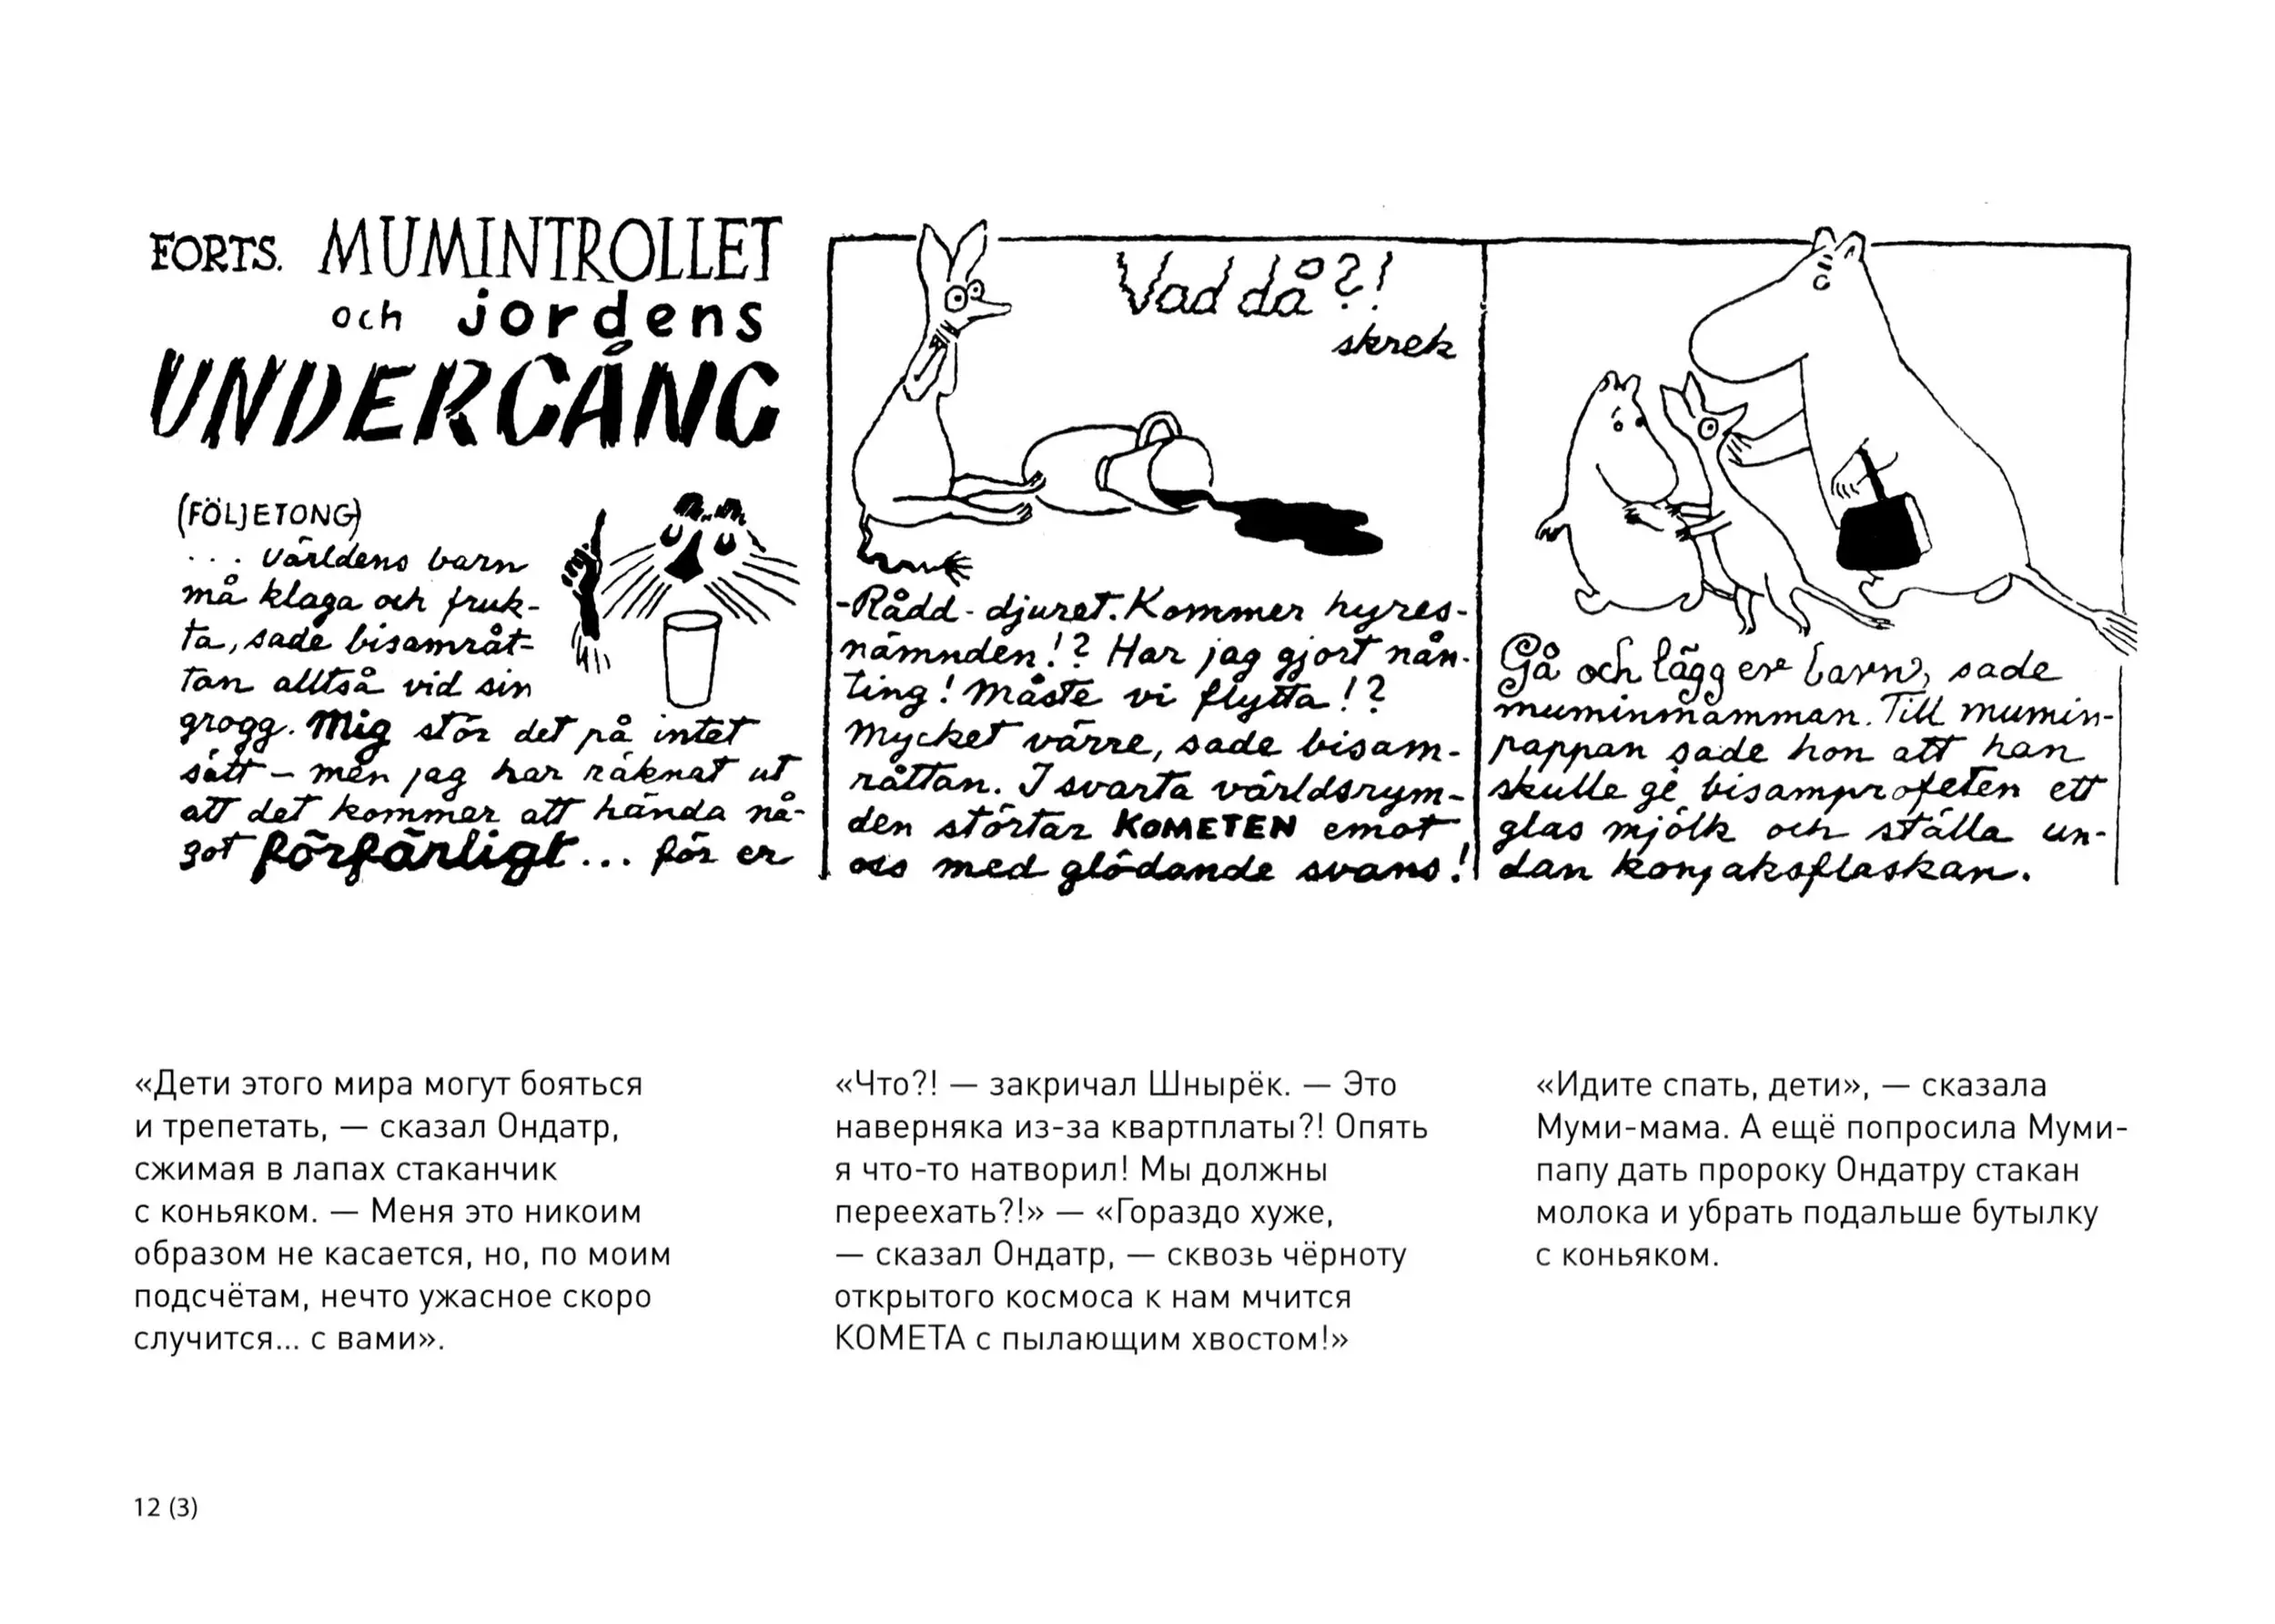 FORTS. MUMINTROLLET
och jordens
UNDERGÅNG
(FÖLJETONG)
... världens barn
må klaga och fruk-
ta, sade bisamråt-
tan alltså vid sin
grogg. Mig stör det på intet
sätt – men jag har räknat ut
att det kommer att hända nå-
got förfärligt... för er
Vad då?!
skrek
-Rådd-djuret. Kommer hyres-
nämnden!? Har jag gjort nån-
ting! Måste vi flytta!?
Mycket värre, sade bisam-
råttan. I svarta världsrym-
den störtar KOMETEN emot
oss med glödande svans!
Gå och lägg er barn, sade
muminmamman. Till mumin-
pappan sade hon att han
skulle ge bisamprofeten ett
glas mjölk och ställa un-
dan konjaksflaskan.
«Дети этого мира могут бояться
и трепетать, — сказал Ондатр,
сжимая в лапах стаканчик
с коньяком. — Меня это никоим
образом не касается, но, по моим
подсчётам, нечто ужасное скоро
случится... с вами».
«Что?! — закричал Шнырёк. — Это
наверняка из-за квартплаты?! Опять
я что-то натворил! Мы должны
переехать?!» — «Гораздо хуже,
— сказал Ондатр, — сквозь чёрноту
открытого космоса к нам мчится
КОМЕТА с пылающим хвостом!»
«Идите спать, дети», — сказала
Муми-мама. А ещё попросила Муми-
папу дать пророку Ондатру стакан
молока и убрать подальше бутылку
с коньяком.
12 (3)